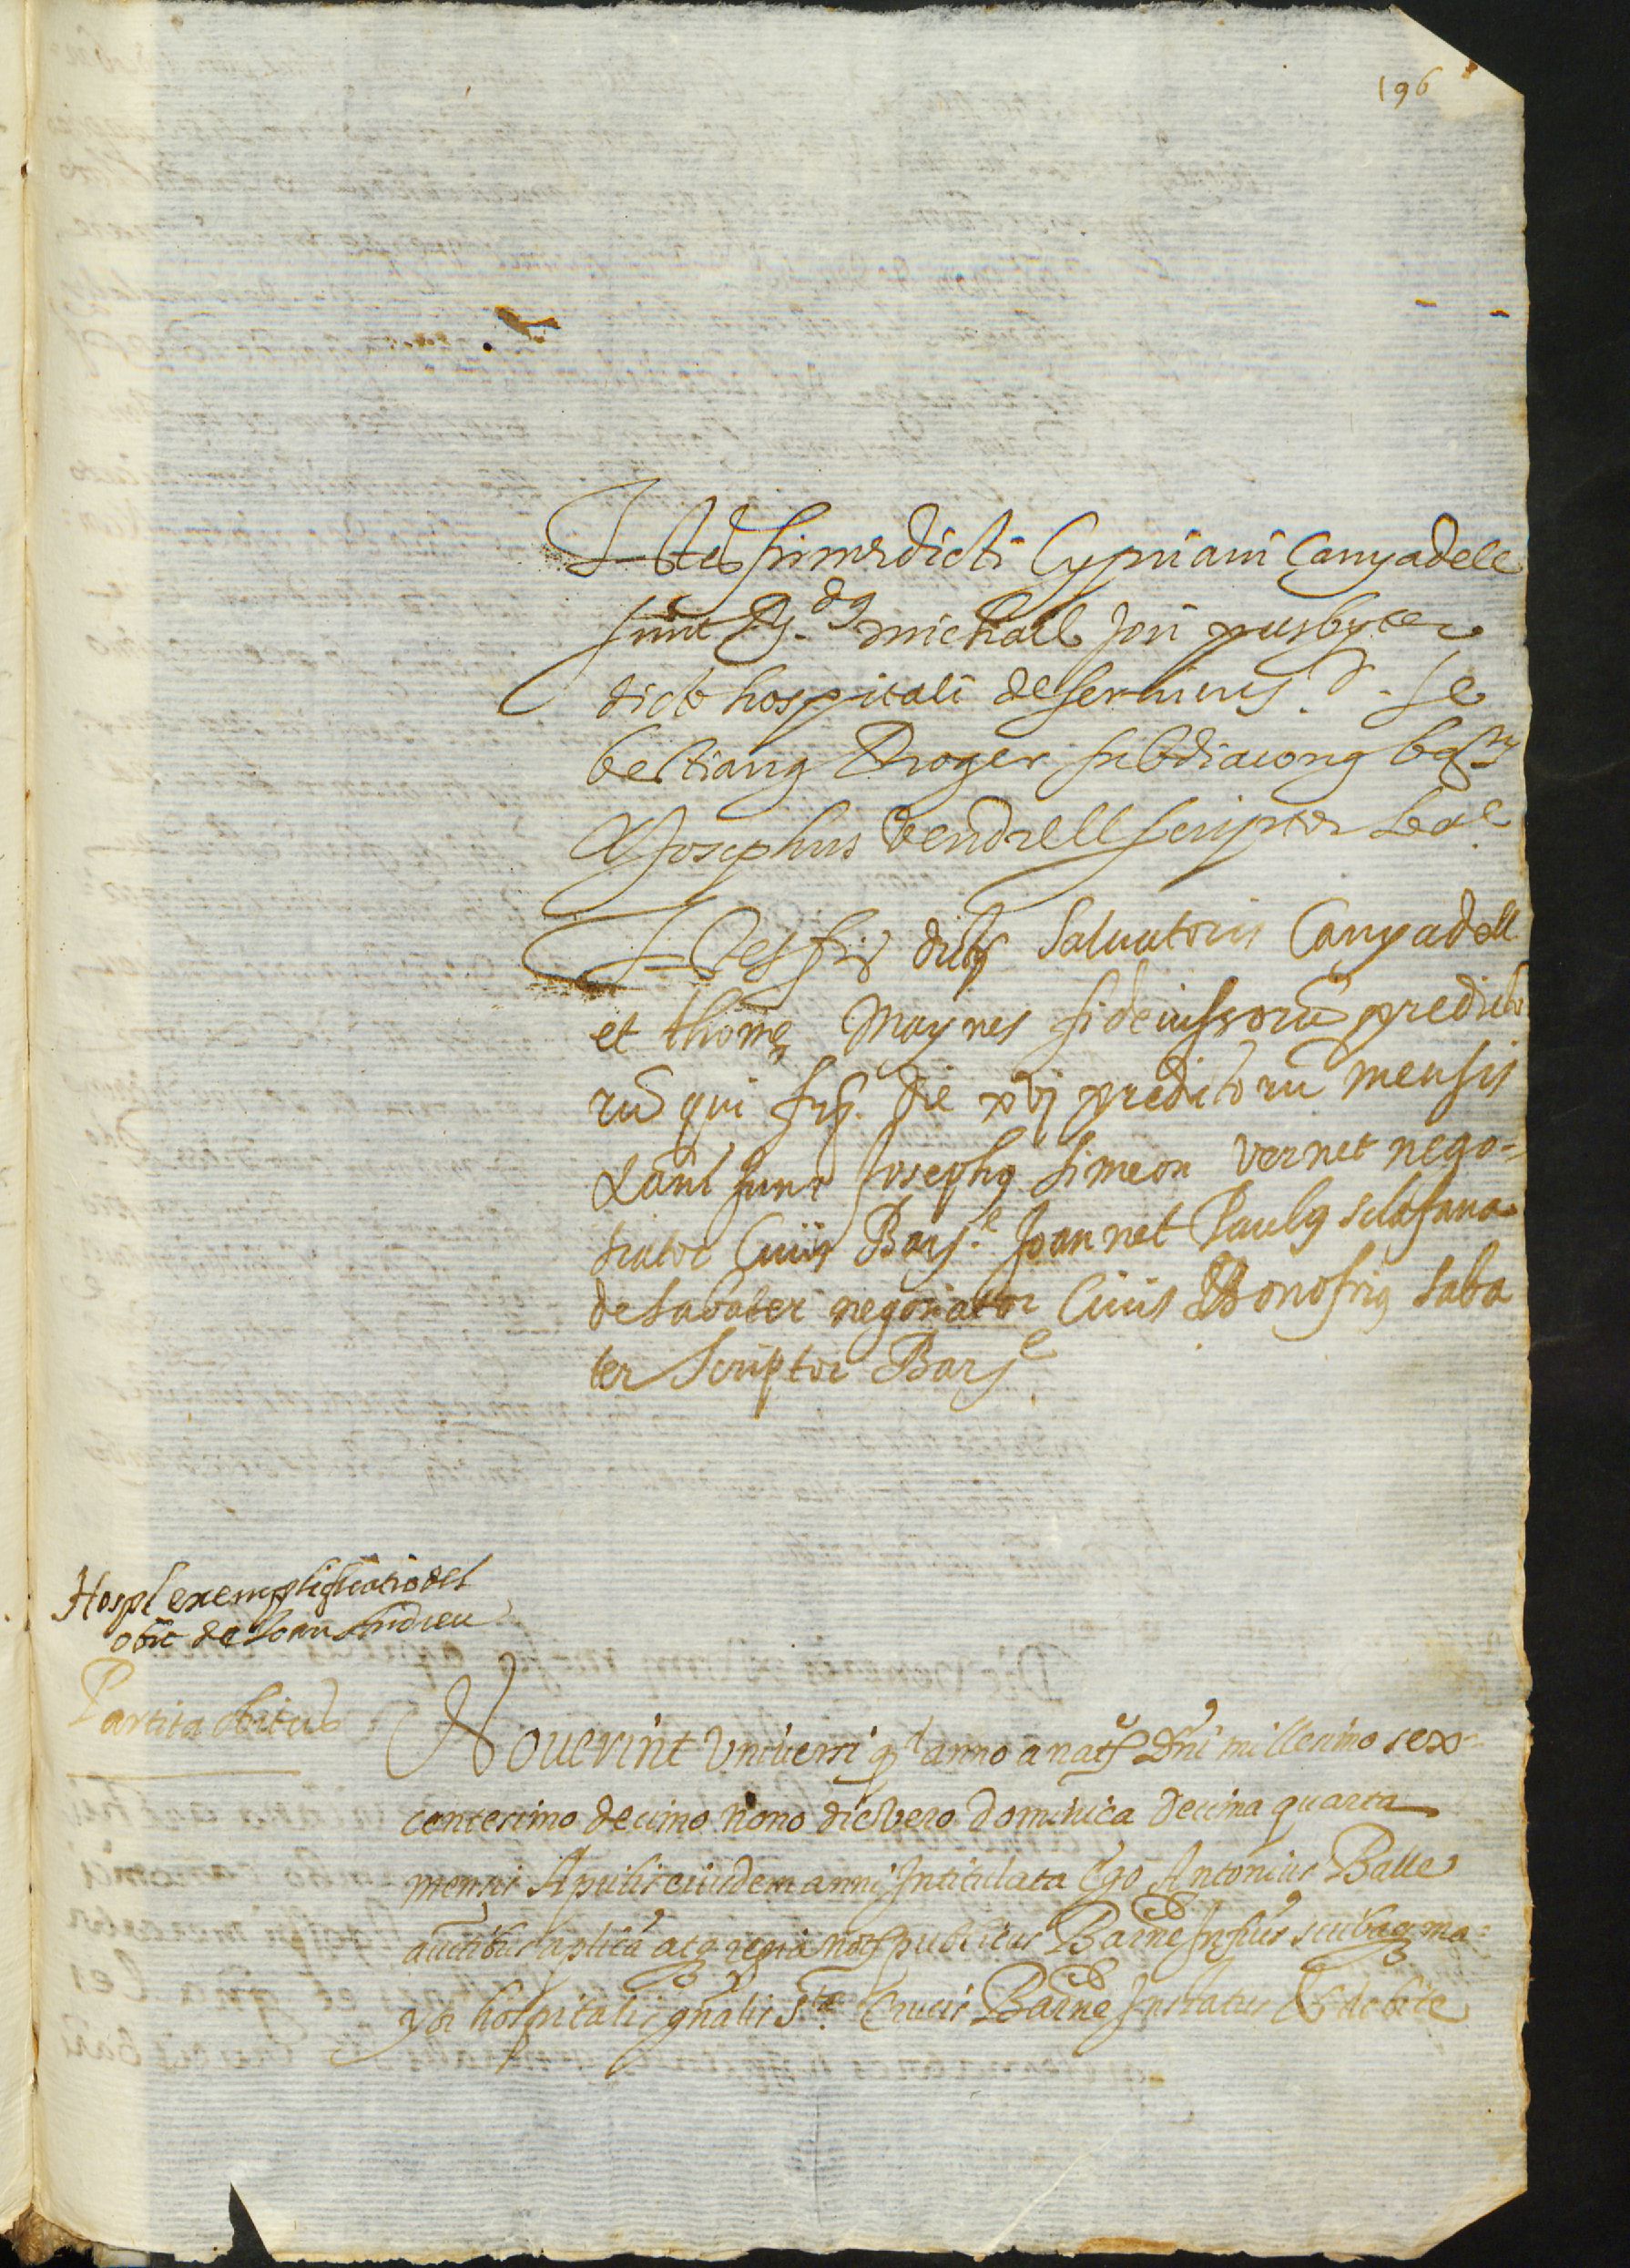 196
Testes firme dicti Cypriani Canyadell
sunt R.dus michael Jon presbyter
dicto hospitali deserviens. Se
bestianus Roger subdiaconus
& Josephus Vendrell scriptor
Testes firme dictorum Salvatoris Canyadell
et thome Maynes fideiussorum predicto
rum qui die xvj predictorum mensis
& anni sunt Josephus Simeon Vernet nego=
tiator Civis Barj.e Joannet Paulus
de Sabater negotiator Civis & Bonofrius Saba
ter Scriptor Barj.e
Hospl exemplificatio del
obit de Joan Andreu
Partita obitus
Noverint Universi qd anno a nate Dni millesimo sex=
centesimo decimo nono die vero dominica decima quarta
mensis Aprilis eiusdem anni Intitulata Ego Antonius Batlle
auctibus aplica atq regia nots publicus Barne Infrus scribaq ma=
yor hospitalis gnalis Ste Crucis Barne Instatus & debite